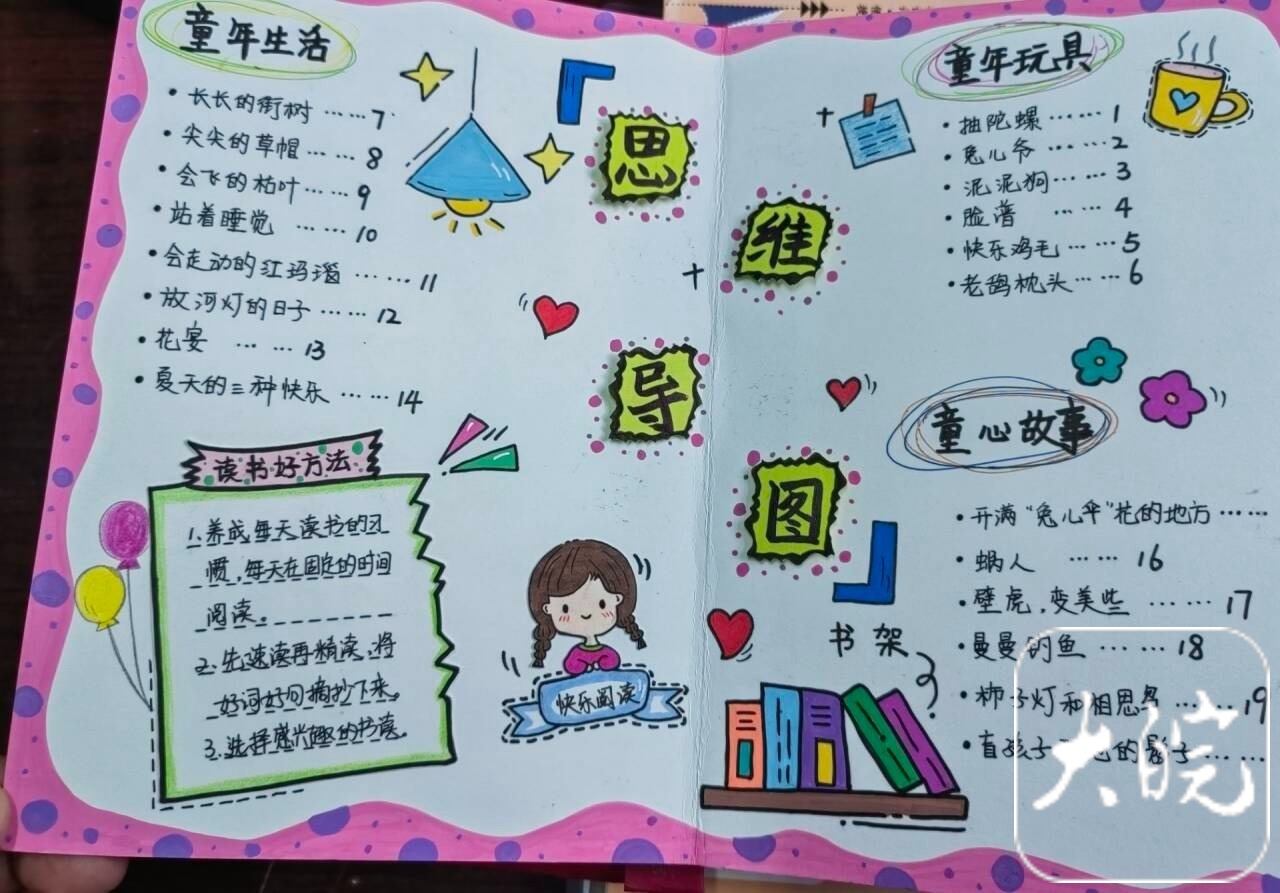 童年生活
长长的街树 …… 7
尖尖的草帽 …… 8
会飞的枯叶 …… 9
站着睡觉 …… 10
会走动的红玛瑙 …… 11
放河灯的日子 …… 12
花宴 …… 13
夏天的三种快乐 …… 14
读书好方法
1.养成每天读书的习
惯,每天在固定的时间
阅读。
2.先速读再精读,将
好词好句摘抄下来。
3.选择感兴趣的书读。
思
维
导
图
快乐阅读
童年玩具
抽陀螺 …… 1
兔儿爷 …… 2
泥泥狗 …… 3
脸谱 …… 4
快乐鸡毛 …… 5
老鸹枕头 …… 6
童心故事
开满“兔儿伞”花的地方 ……
蜗人 …… 16
壁虎变美些 …… 17
曼曼钓鱼 …… 18
柿子灯和相思鸟 …… 19
盲孩子 的影子 ……
书架
大皖